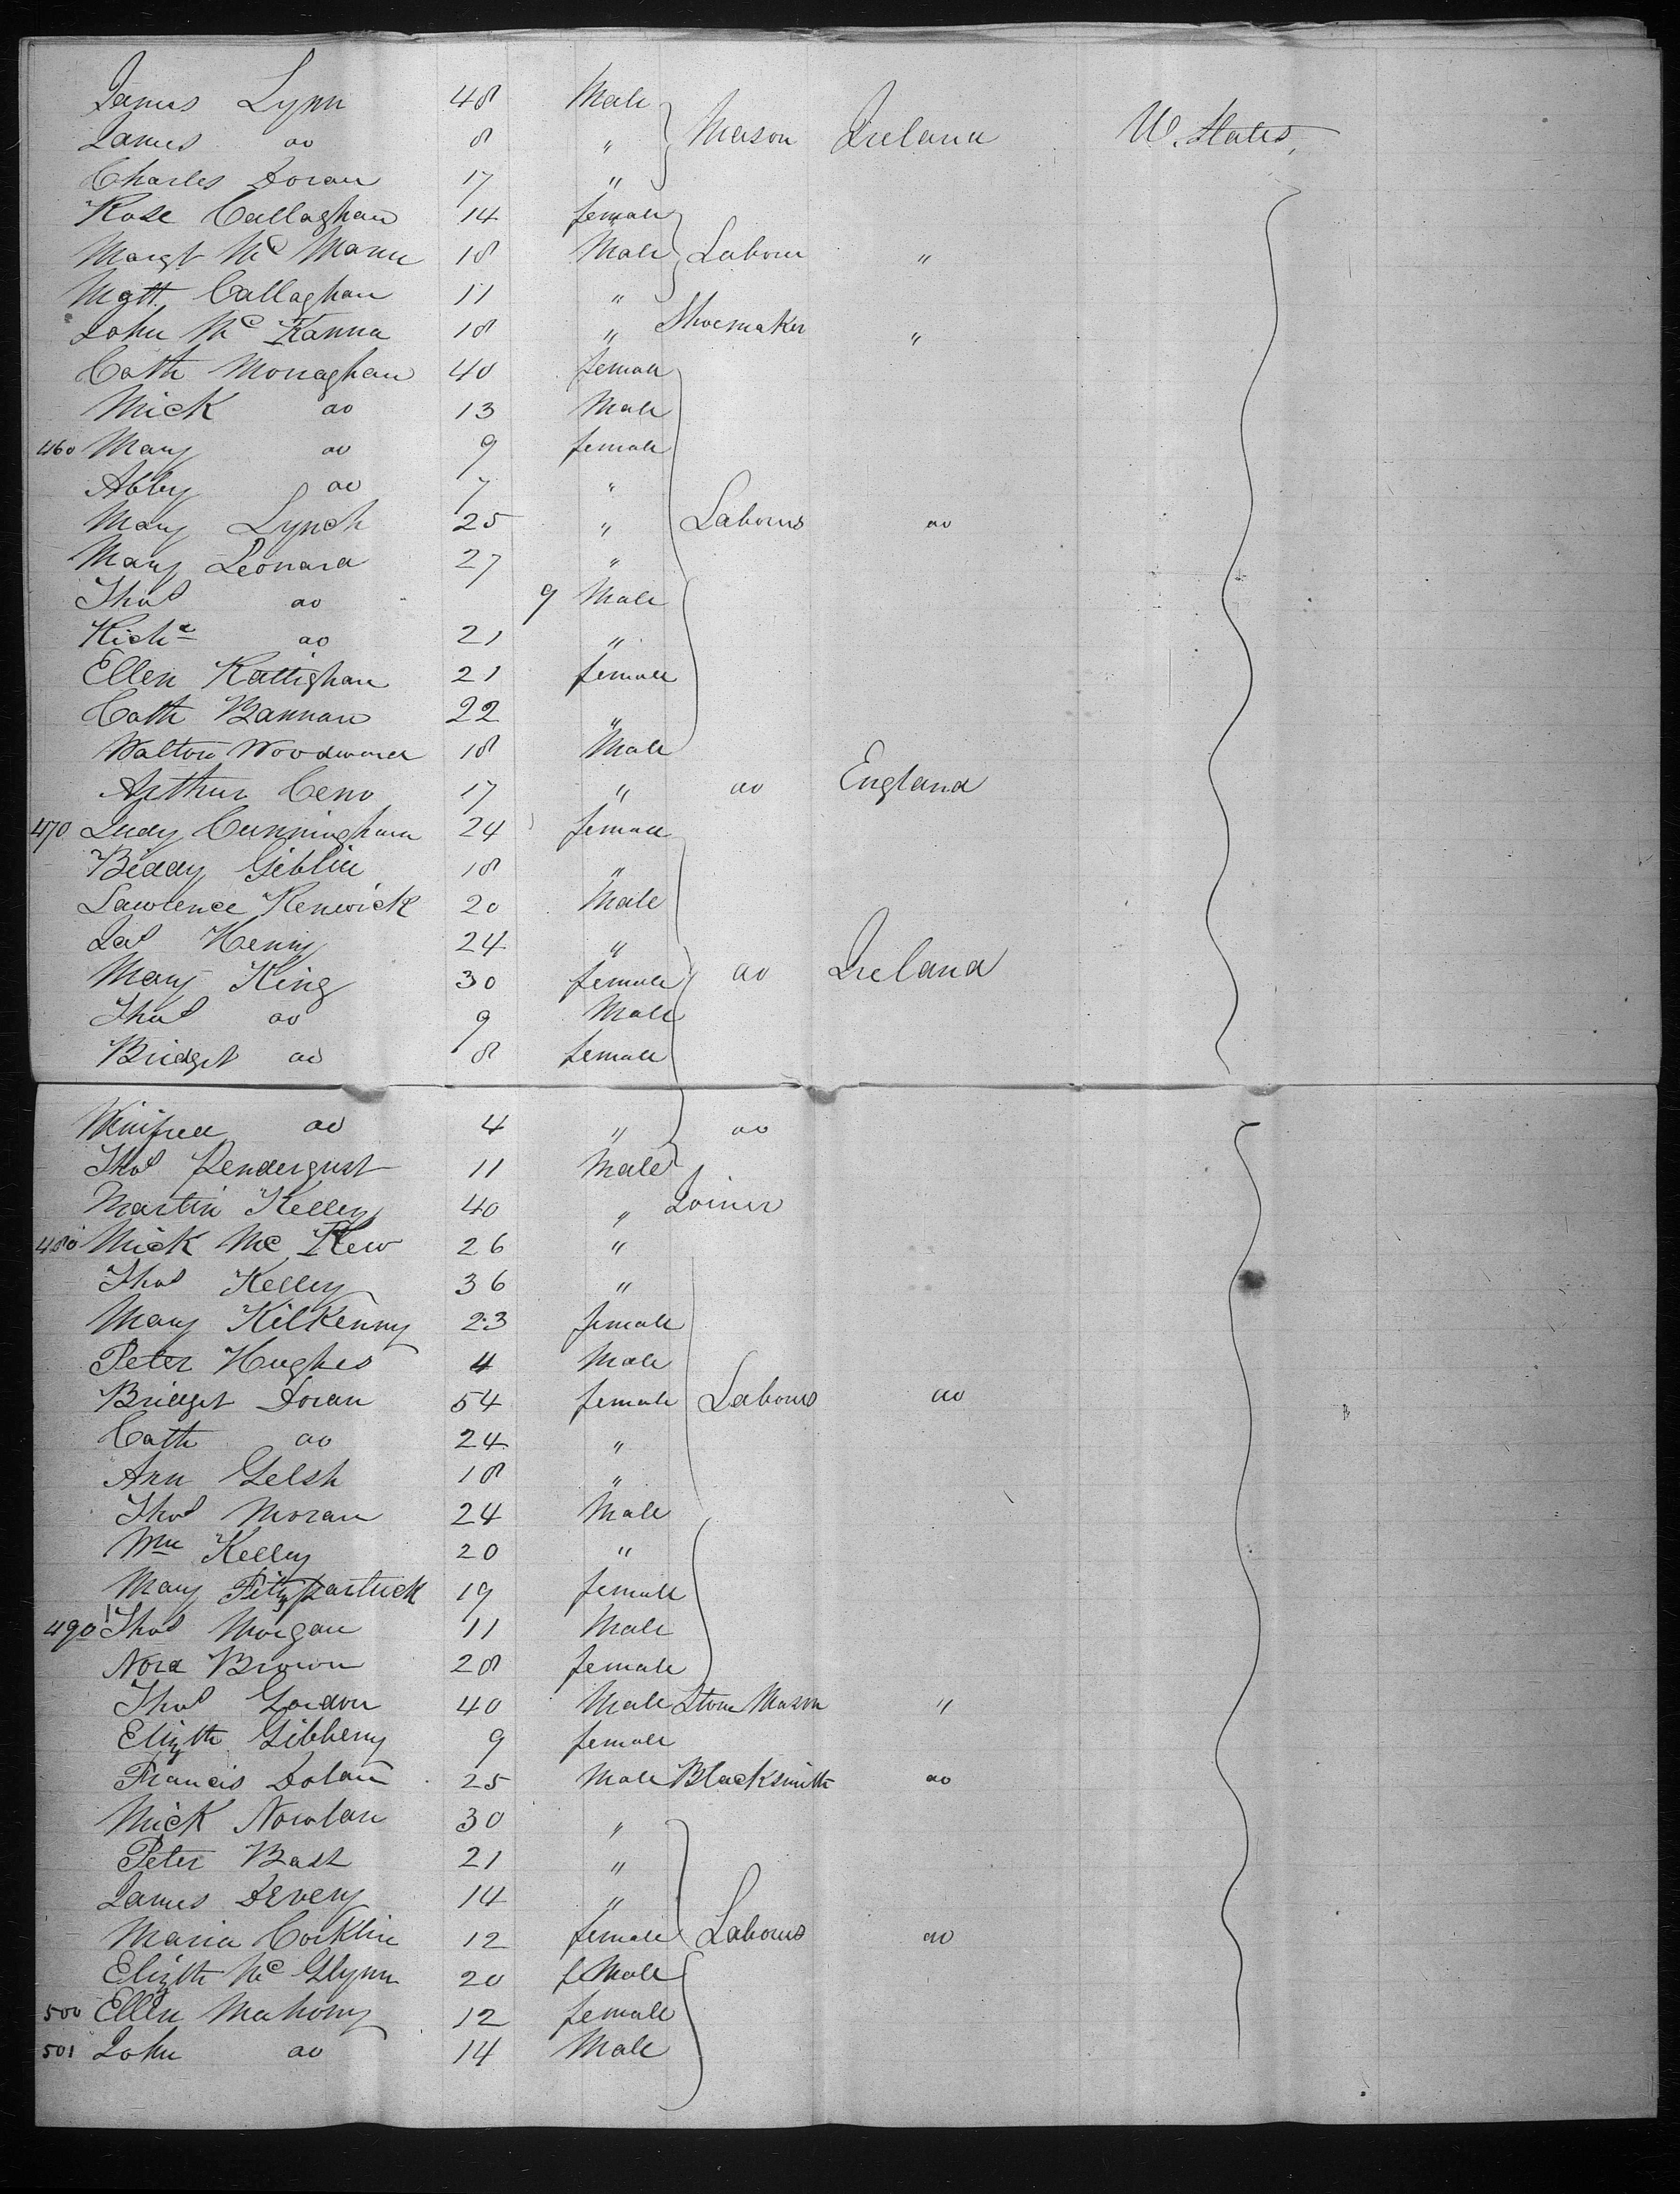 James Lynn 48 Male
James do 8 " Mason Ireland U. States,
Charles Doran 17 "
Rose Callaghan 14 female
Margt Mc Mann 18 Male Labour "
Mgtt Callaghan 11 "
John Mc Kanna 18 " Shoemaker "
Cath Monaghan 40 female
Mick do 13 Male
460 Mary do 9 female
Abby do 7 "
Mary Lynch 25 " Labours do
Mary Leonard 27 "
Thos do 9 Male
Richd do 21 "
Ellen Rattighan 21 female
Cath Bannan 22 "
Walton Woodward 18 Male
Arthur Ceno 17 " do England
470 Judy Cunningham 24 female
Biddy Giblin 18 "
Lawrence Renwick 20 Male
Jas Henry 24 "
Mary King 30 female do Ireland
Thos do 9 Male
Bridget do 8 female
Winifred do 4 " do
Thos Pendergust 11 Male
Martin Kelley 40 " Joiner
480 Mick Mc Kew 26 "
Thos Kelley 36 "
Mary Kilkenny 23 female
Peter Hughes 4 Male
Bridget Doran 54 female Labours do
Cath do 24 "
Ann Gelsh 18 "
Thos Moran 24 Male
Wm Kelley 20 "
Mary Fitzpartrick 19 female
490 Thos Morgan 11 Male
Nora Brown 28 female
Thos Gordon 40 Male Stone Mason "
Elizth Gibbeny 9 female
Francis Dolan 25 Male Blacksmith do
Mick Nowlan 30 "
Peter Bast 21 "
James Devery 14 "
Maria Corklin 12 female Labours do
Elizth Mc Glynn 20 f Male
500 Ellen Mahony 12 female
501 John do 14 Male